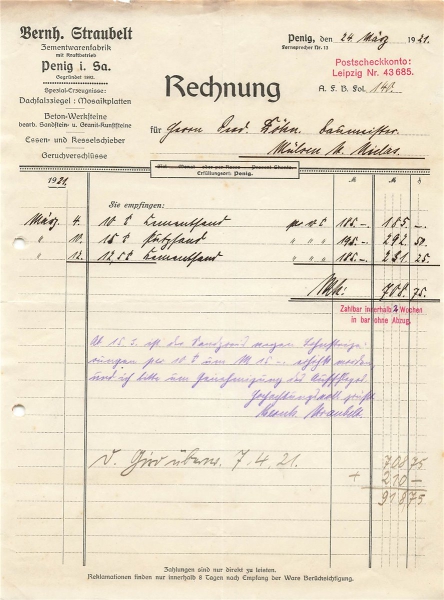 Bernh. Straubelt
Zementwarenfabrik
mit Kraftbetrieb
Penig i. Sa.
Gegründet 1902.
Spezial-Erzeugnisse:
Dachfalzziegel : Mosaikplatten
Beton-Werksteine
bearb. Sandstein- u. Granit-Kunststeine
Essen- und Kesselschieber
Geruchverschlüsse
Penig, den 24. März 1921.
Fernsprecher Nr. 13
Postscheckkonto:
Leipzig Nr. 43685.
Rechnung
A. F. B. Fol. 140.
für Herrn Baumeister
Mülsen St. Niclas.
Erfüllungsort: Penig.
1921.
M
Sie empfingen:
März 4. 10 t Zementsand 185.- 185.-
" 10. 15 t Putzsand " " " 195.- 292.50
" 12. 12,5 t Zementsand " " " 185.- 231.25
Mk: 708.75
Zahlbar innerhalb 2 Wochen
in bar ohne Abzug.
Ab 15.3. ist der
per 10 t um M 15.- erhöht worden
und ich bitte um Genehmigung des
Hochachtungsvoll
Bernh. Straubelt.
d. Giro überw. 7.4.21.
708 75
+ 210 -
918 75
Zahlungen sind nur direkt zu leisten.
Reklamationen finden nur innerhalb 8 Tagen nach Empfang der Ware Berücksichtigung.